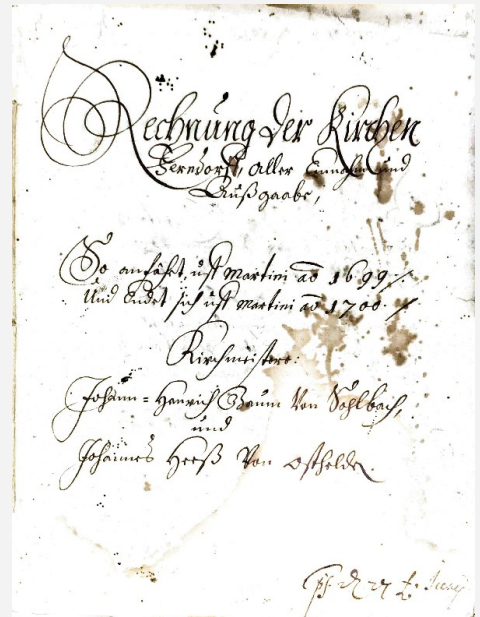 Rechnung der Kirchen
Ferndorff, aller Einnahm und
Außgaabe,
So anfährt uff Martini ao 1699
Und Endet sich uff Martini ao 1700
Kirchmeistere:
Johann=Henrich Baum Von Sohlbach,
und
Johannes Heeß Von Osthelden.
27